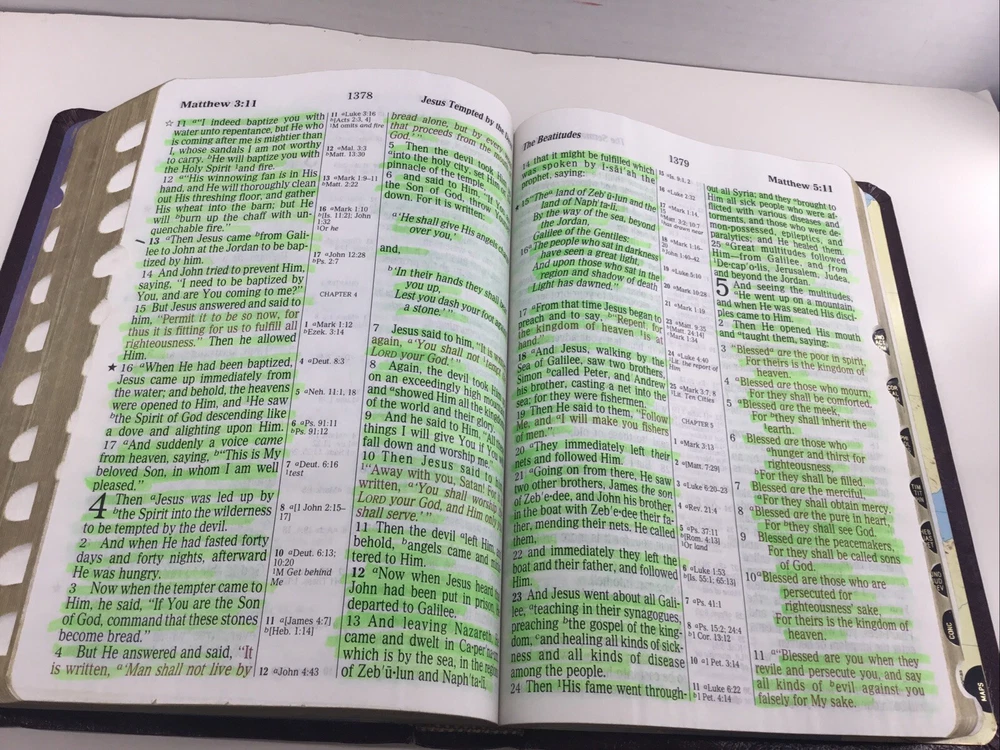 Matthew 3:11
1378
Jesus Tempted by the
☆ 11 ᵃ"I indeed baptize you with
water unto repentance, but He who
is coming after me is mightier than
I, whose sandals I am not worthy
to carry. ᵇHe will baptize you with
the Holy Spirit ¹and fire.
12 ᵃ"His winnowing fan is in His
hand, and He will thoroughly clean
out His threshing floor, and gather
His wheat into the barn; but He
will ᵇburn up the chaff with un-
quenchable fire."
13 ᵃThen Jesus came ᵇfrom Gali-
lee to John at the Jordan to be bap-
tized by him.
14 And John tried to prevent Him,
saying, "I need to be baptized by
You, and are You coming to me?"
15 But Jesus answered and said to
him, "Permit it to be so now, for
thus it is fitting for us to fulfill all
righteousness." Then he allowed
Him.
★ 16 ᵃWhen He had been baptized,
Jesus came up immediately from
the water; and behold, the heavens
were opened to Him, and ¹He saw
ᵇthe Spirit of God descending like
a dove and alighting upon Him.
17 ᵃAnd suddenly a voice came
from heaven, saying, ᵇ"This is My
beloved Son, in whom I am well
pleased."
4 Then ᵃJesus was led up by
ᵇthe Spirit into the wilderness
to be tempted by the devil.
2 And when He had fasted forty
days and forty nights, afterward
He was hungry.
3 Now when the tempter came to
Him, he said, "If You are the Son
of God, command that these stones
become bread."
4 But He answered and said, "It
is written, ᵃ'Man shall not live by
11 ᵃLuke 3:16
ᵇ[Acts 2:3, 4]
¹M omits and fire
12 ᵃMal. 3:3
ᵇMatt. 13:30
13 ᵃMark 1:9–11
ᵇMatt. 2:22
16 ᵃMark 1:10
ᵇ[Is. 11:2]; John
1:32
¹Or he
17 ᵃJohn 12:28
ᵇPs. 2:7
CHAPTER 4
1 ᵃMark 1:12
ᵇEzek. 3:14
4 ᵃDeut. 8:3
5 ᵃNeh. 11:1, 18
6 ᵃPs. 91:11
ᵇPs. 91:12
7 ᵃDeut. 6:16
¹test
8 ᵃ[1 John 2:15–
17]
10 ᵃDeut. 6:13;
10:20
¹M Get behind
Me
11 ᵃ[James 4:7]
ᵇ[Heb. 1:14]
12 ᵃJohn 4:43
bread alone, but by every
that proceeds from the
God.'"
5 Then the devil took Him
ᵃinto the holy city, set Him
pinnacle of the temple,
6 and said to Him,
the Son of God, throw
down. For it is written:
ᵃ'He shall give His angels
over you,'
and,
ᵇ'In their hands they shall
you up,
Lest you dash your foot
a stone.'"
7 Jesus said to him, "It is
again, ᵃ'You shall not ¹tempt
LORD your God.'"
8 Again, the devil took Him
on an exceedingly high
and ᵃshowed Him all the
of the world and their glory.
9 And he said to Him, "All
things I will give You if You
fall down and worship me."
10 Then Jesus said to
¹"Away with you, Satan! For
written, ᵃ'You shall worship
LORD your God, and Him only
shall serve.'"
11 Then the devil ᵃleft Him,
behold, ᵇangels came and
tered to Him.
12 ᵃNow when Jesus heard
John had been put in prison,
departed to Galilee.
13 And leaving Nazareth,
came and dwelt in Caper
which is by the sea, in the
of Zeb'ū·lun and Naph'ta·lī,
The Beatitudes
1379
Matthew 5:11
14 that it might be fulfilled which
was spoken by I·sā'iah the
prophet, saying:
15 ᵃ"The land of Zeb'ū·lun and the
land of Naph'ta·lī,
By the way of the sea, beyond
the Jordan,
Galilee of the Gentiles:
16 ᵃThe people who sat in darkness
have seen a great light,
And upon those who sat in the
region and shadow of death
Light has dawned."
17 ᵃFrom that time Jesus began to
preach and to say, ᵇ"Repent, for
the kingdom of heaven is at
hand."
18 ᵃAnd Jesus, walking by the
Sea of Galilee, saw two brothers,
Simon ᵇcalled Peter, and Andrew
his brother, casting a net into the
sea; for they were fishermen.
19 Then He said to them, "Follow
Me, and ᵃI will make you fishers
of men."
20 ᵃThey immediately left their
nets and followed Him.
21 ᵃGoing on from there, He saw
two other brothers, James the son
of Zeb'e·dee, and John his brother,
in the boat with Zeb'e·dee their fa-
ther, mending their nets. He called
them,
22 and immediately they left the
boat and their father, and followed
Him.
23 And Jesus went about all Gali-
lee, ᵃteaching in their synagogues,
preaching ᵇthe gospel of the king-
dom, ᶜand healing all kinds of sick-
ness and all kinds of disease
among the people.
24 Then ¹His fame went through-
15 ᵃIs. 9:1, 2
16 ᵃLuke 2:32
17 ᵃMark 1:14,
15
ᵇMatt. 3:2; 10:7
¹has drawn near
18 ᵃMark 1:16–
ᵇJohn 1:40–42
19 ᵃLuke 5:10
20 ᵃMark 10:28
21 ᵃMark 1:19
23 ᵃMatt. 9:35
ᵇ[Matt. 24:14]
ᶜMark 1:34
24 ᵃLuke 4:40
¹Lit. the report of
Him
25 ᵃMark 3:7, 8
¹Lit. Ten Cities
CHAPTER 5
1 ᵃMark 3:13
2 ᵃ[Matt. 7:29]
3 ᵃLuke 6:20–23
4 ᵃRev. 21:4
5 ᵃPs. 37:11
ᵇ[Rom. 4:13]
¹Or land
6 ᵃLuke 1:53
ᵇ[Is. 55:1; 65:13]
7 ᵃPs. 41:1
8 ᵃPs. 15:2; 24:4
ᵇ1 Cor. 13:12
10 ᵃ1 Pet. 3:14
11 ᵃLuke 6:22
ᵇ1 Pet. 4:14
out all Syria; and they ᵃbrought to
Him all sick people who were af-
flicted with various diseases and
torments, and those who were de-
mon-possessed, epileptics, and
paralytics; and He healed them.
25 ᵃGreat multitudes followed
Him—from Galilee, and from
¹De·cap'o·lis, Jerusalem, Judea,
and beyond the Jordan.
5 And seeing the multitudes,
ᵃHe went up on a mountain,
and when He was seated His disci-
ples came to Him.
2 Then He opened His mouth
and ᵃtaught them, saying:
3 ᵃ"Blessed are the poor in spirit,
For theirs is the kingdom of
heaven.
4 ᵃBlessed are those who mourn,
For they shall be comforted.
5 ᵃBlessed are the meek,
For ᵇthey shall inherit the
¹earth.
6 Blessed are those who
ᵃhunger and thirst for
righteousness,
ᵇFor they shall be filled.
7 Blessed are the merciful,
ᵃFor they shall obtain mercy.
8 ᵃBlessed are the pure in heart,
For ᵇthey shall see God.
9 Blessed are the peacemakers,
For they shall be called sons
of God.
10 ᵃBlessed are those who are
persecuted for
righteousness' sake,
For theirs is the kingdom of
heaven.
11 ᵃ"Blessed are you when they
revile and persecute you, and say
all kinds of ᵇevil against you
falsely for My sake.
TIM
TIT
CONC
MAPS